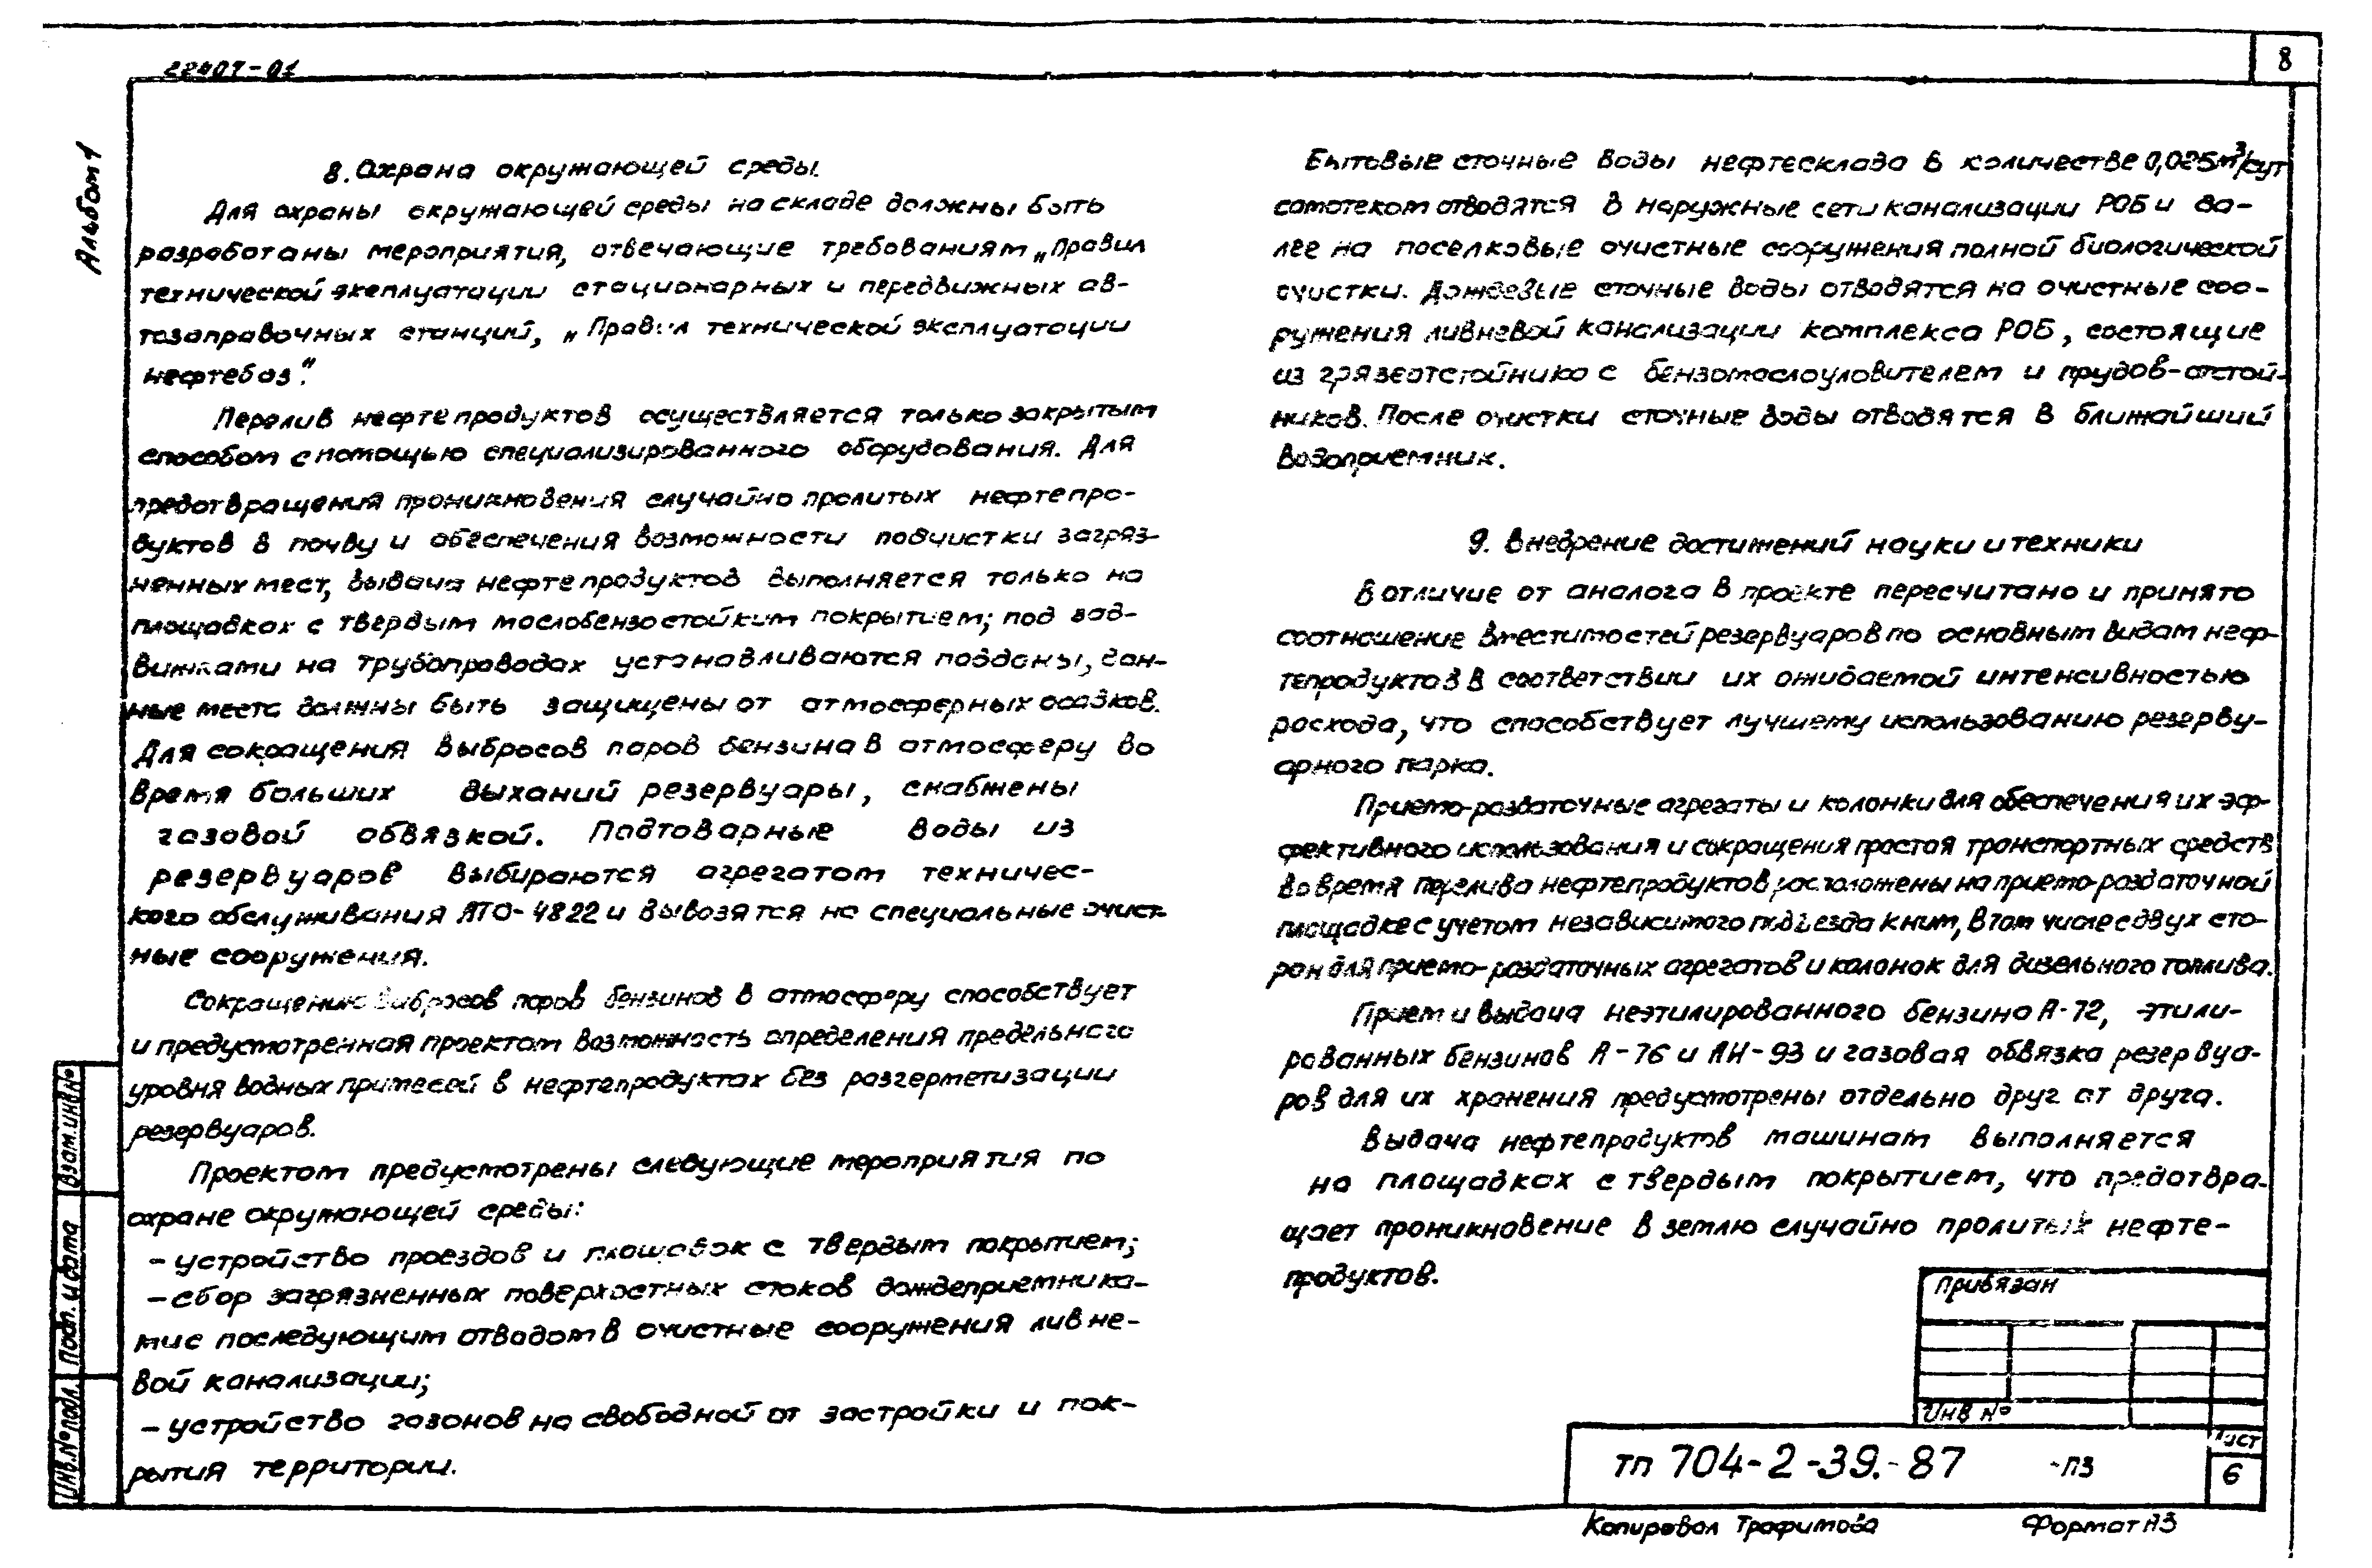 22407-01
8
Альбом 1
8. Охрана окружающей среды.
Для охраны окружающей среды на складе должны быть
разработаны мероприятия, отвечающие требованиям „Правил
технической экеплуатации стационарных и передвижных ав-
тозаправочных станций, „Правил технической эксплуатации
нефтебаз".
Перелив нефтепродуктов осуществляется только закрытым
способом с помощью специализированного оборудования. Для
предотвращения проникновения случайно пролитых нефтепро-
дуктов в почву и обеспечения возможности подчистки загряз-
ненных мест, выдача нефтепродуктов выполняется только на
площадках с твердым маслобензостойким покрытием; под зад-
вижками на трубопроводах устанавливаются поддоны, дан-
ные места должны быть защищены от атмосферных осадков.
Для сокращения выбросов паров бензина в атмосферу во
время больших дыханий резервуары, снабжены
газовой обвязкой. Подтоварные воды из
резервуаров выбираются агрегатом техничес-
кого обслуживания АТО-4822 и вывозятся на специальные очист-
ные сооружения.
Сокращению выбросов паров бензинов в атмосферу способствует
и предусмотренная проектом возможность определения предельного
уровня водных примесей в нефтепродуктах без разгерметизации
резервуаров.
Проектом предусмотрены следующие мероприятия по
охране окружающей среды:
- устройство проездов и площадок с твердым покрытием;
- сбор загрязненных поверхостных стоков дождеприемника-
ми с последующим отводом в очистные сооружения ливне-
вой канализации;
- устройство газонов на свободной от застройки и пок-
рытия территории.
Бытовые сточные воды нефтесклада в количестве 0,025м³/сут
самотеком отводятся в наружные сети канализации РОБ и да-
лее на поселковые очистные сооружения полной биологической
очистки. Дождевые сточные воды отводятся на очистные соо-
ружения ливневой канализации комплекса РОБ, состоящие
из грязеотстойника с бензомаслоуловителем и прудов-отстой-
ников. После очистки сточные воды отводятся в ближайший
водоприемник.
9. Внедрение достижений науки и техники
В отличие от аналога в проекте пересчитано и принято
соотношение вместимостей резервуаров по основным видам неф-
тепродуктов в соответствии их ожидаемой интенсивностью
расхода, что способствует лучшему использованию резерву-
арного парка.
Приемо-раздаточные агрегаты и колонки для обеспечения их эф-
фективного использования и сокращения простоя транспортных средств
во время перелива нефтепродуктов расположены на приемо-раздаточной
площадке с учетом независимого подъезда к ним, в том числе с двух сто-
рон для приемо-раздаточных агрегатов и колонок для дизельного топлива.
Прием и выдача неэтилированного бензина А-72, этили-
рованных бензинов А-76 и АИ-93 и газовая обвязка резервуа-
ров для их хранения предусмотрены отдельно друг от друга.
Выдача нефтепродуктов машинам выполняется
на площадках с твердым покрытием, что предотвра-
щает проникновение в землю случайно пролитых нефте-
продуктов.
Привязан
Инв №
ТП 704-2-39.-87 -ПЗ
Лист
6
Копировал Трафимова Формат А3
Взам. инв. №
Подп. и дата
Инв. № подл.